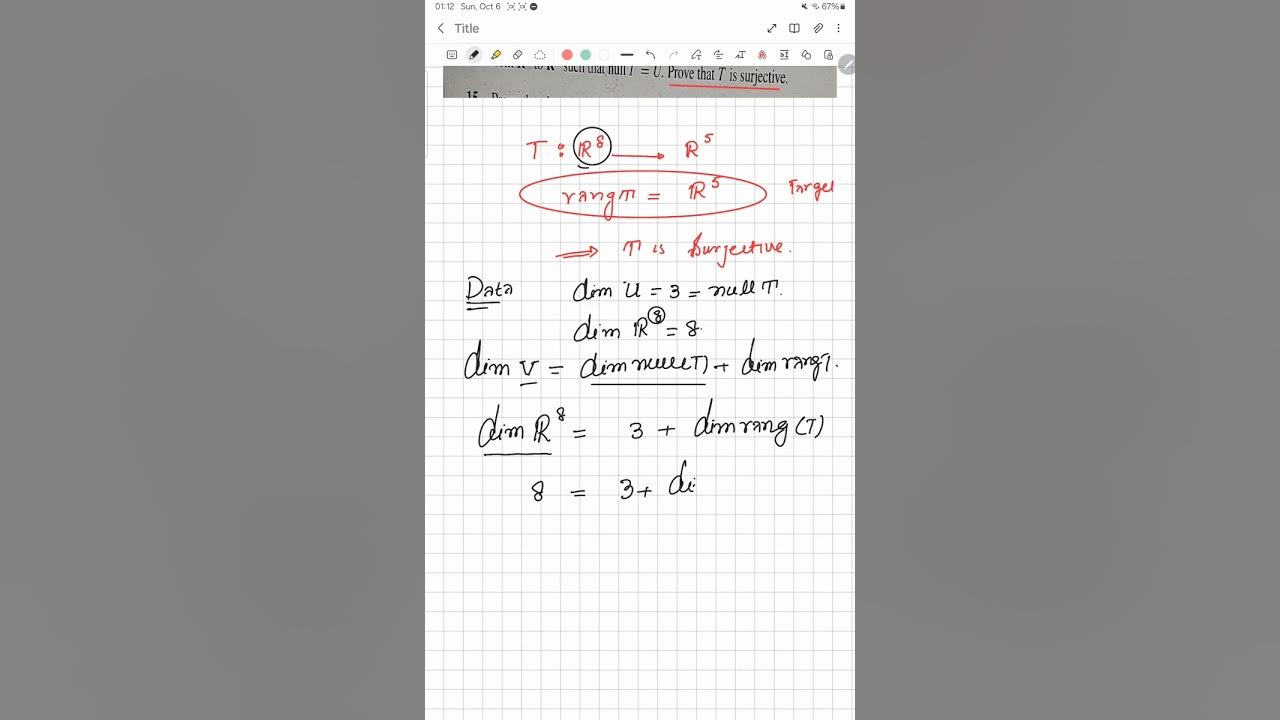 01:12 Sun, Oct 6 67%
Title
such that null T = U. Prove that T is surjective.
15.
T : R⁸ → R⁵
rangT = R⁵ Target
⟹ T is Surjective.
Data dim U = 3 = null T.
dim R⁸ = 8.
dim V = dim null T) + dim rangT.
dim R⁸ = 3 + dim rang (T)
8 = 3 + di